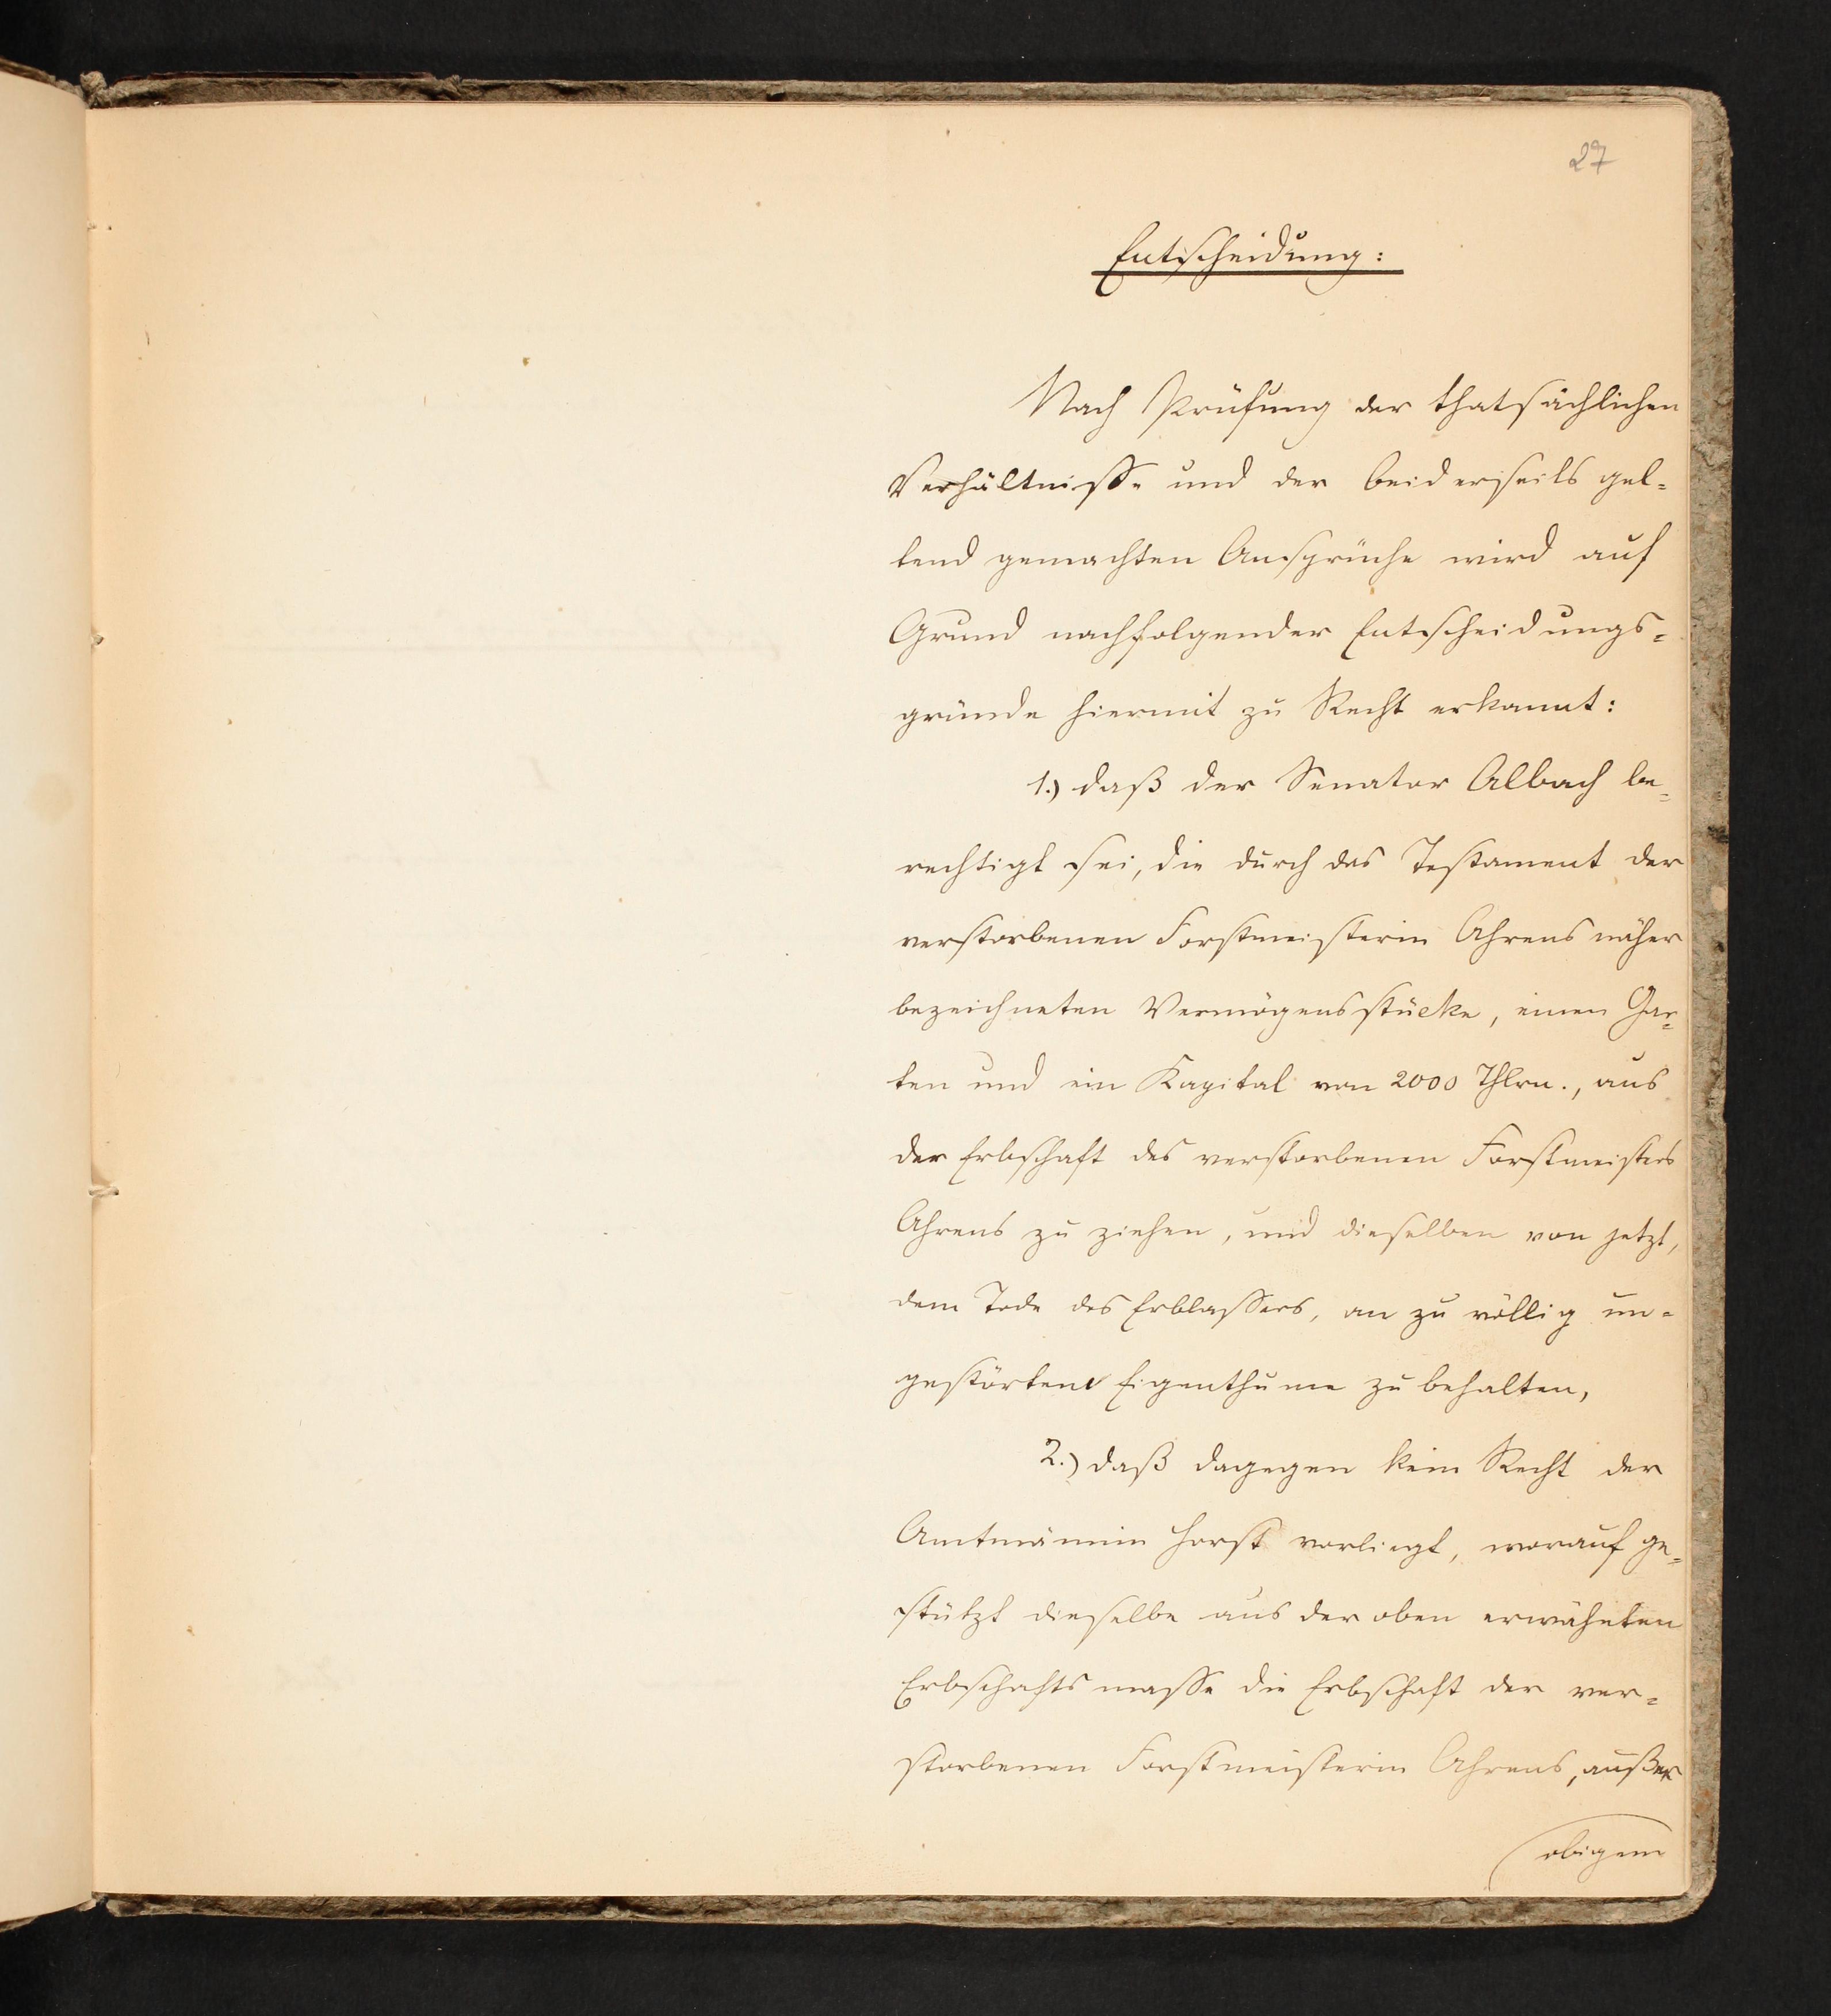 27
Entscheidung:
Nach Prüfung der thatsächlichen
Verhältnisse und der beiderseits gel-
tend gemachten Ansprüche wird auf
Grund nachfolgender Entscheidungs-
gründe hiermit zu Recht erkannt:
1.) daß der Senator Albach be-
rechtigt sei, die durch das Testament der
verstorbenen Forstmeisterin Ahrens näher
bezeichneten Vermögensstücke, einen Gar-
ten und ein Kapital von 2000 Thlrn., aus
der Erbschaft des verstorbenen Forstmeisters
Ahrens zu ziehen, und dieselben von jetzt,
dem Tode des Erblassers, an zu völlig un-
gestörtem Eigenthume zu behalten,
2.) daß dagegen kein Recht der
Amtmännin Horst vorliegt, worauf ge-
stützt dieselbe aus der oben erwähnten
Erbschaftsmasse die Erbschaft der ver-
storbenen Forstmeisterin Ahrens, außer
obigem